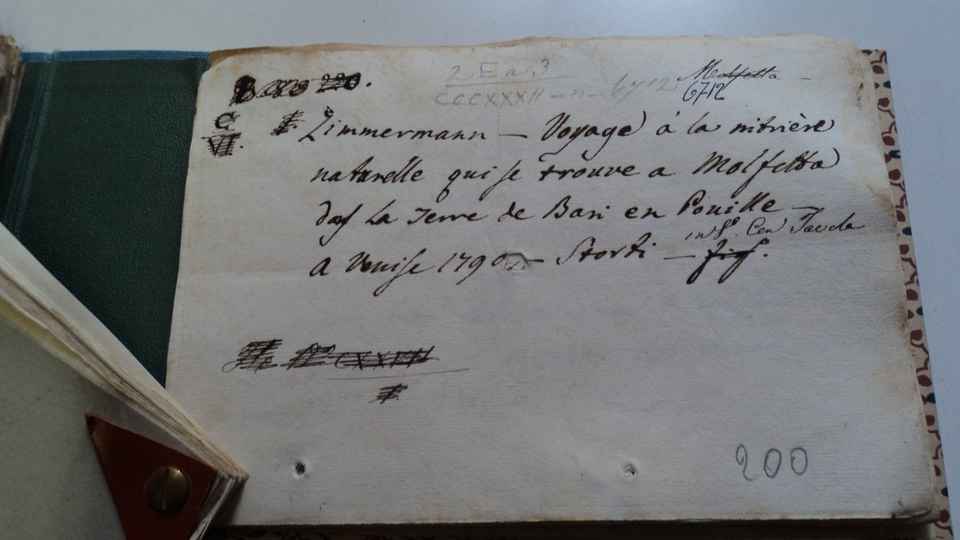 2 E a, 3
CCCXXXII - n - 6712
Molfetta
6712
C
VI.
Zimmermann — Voyage à la nitrière
naturelle qui se trouve a Molfetta
das La Terre de Bari en Pouille —
in 8º. Con Tavola
a Venise 1790 — Storti — fig.
CXXVIII
200